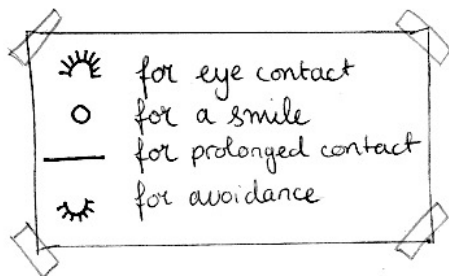 for eye contact
for a smile
for prolonged contact
for avoidance